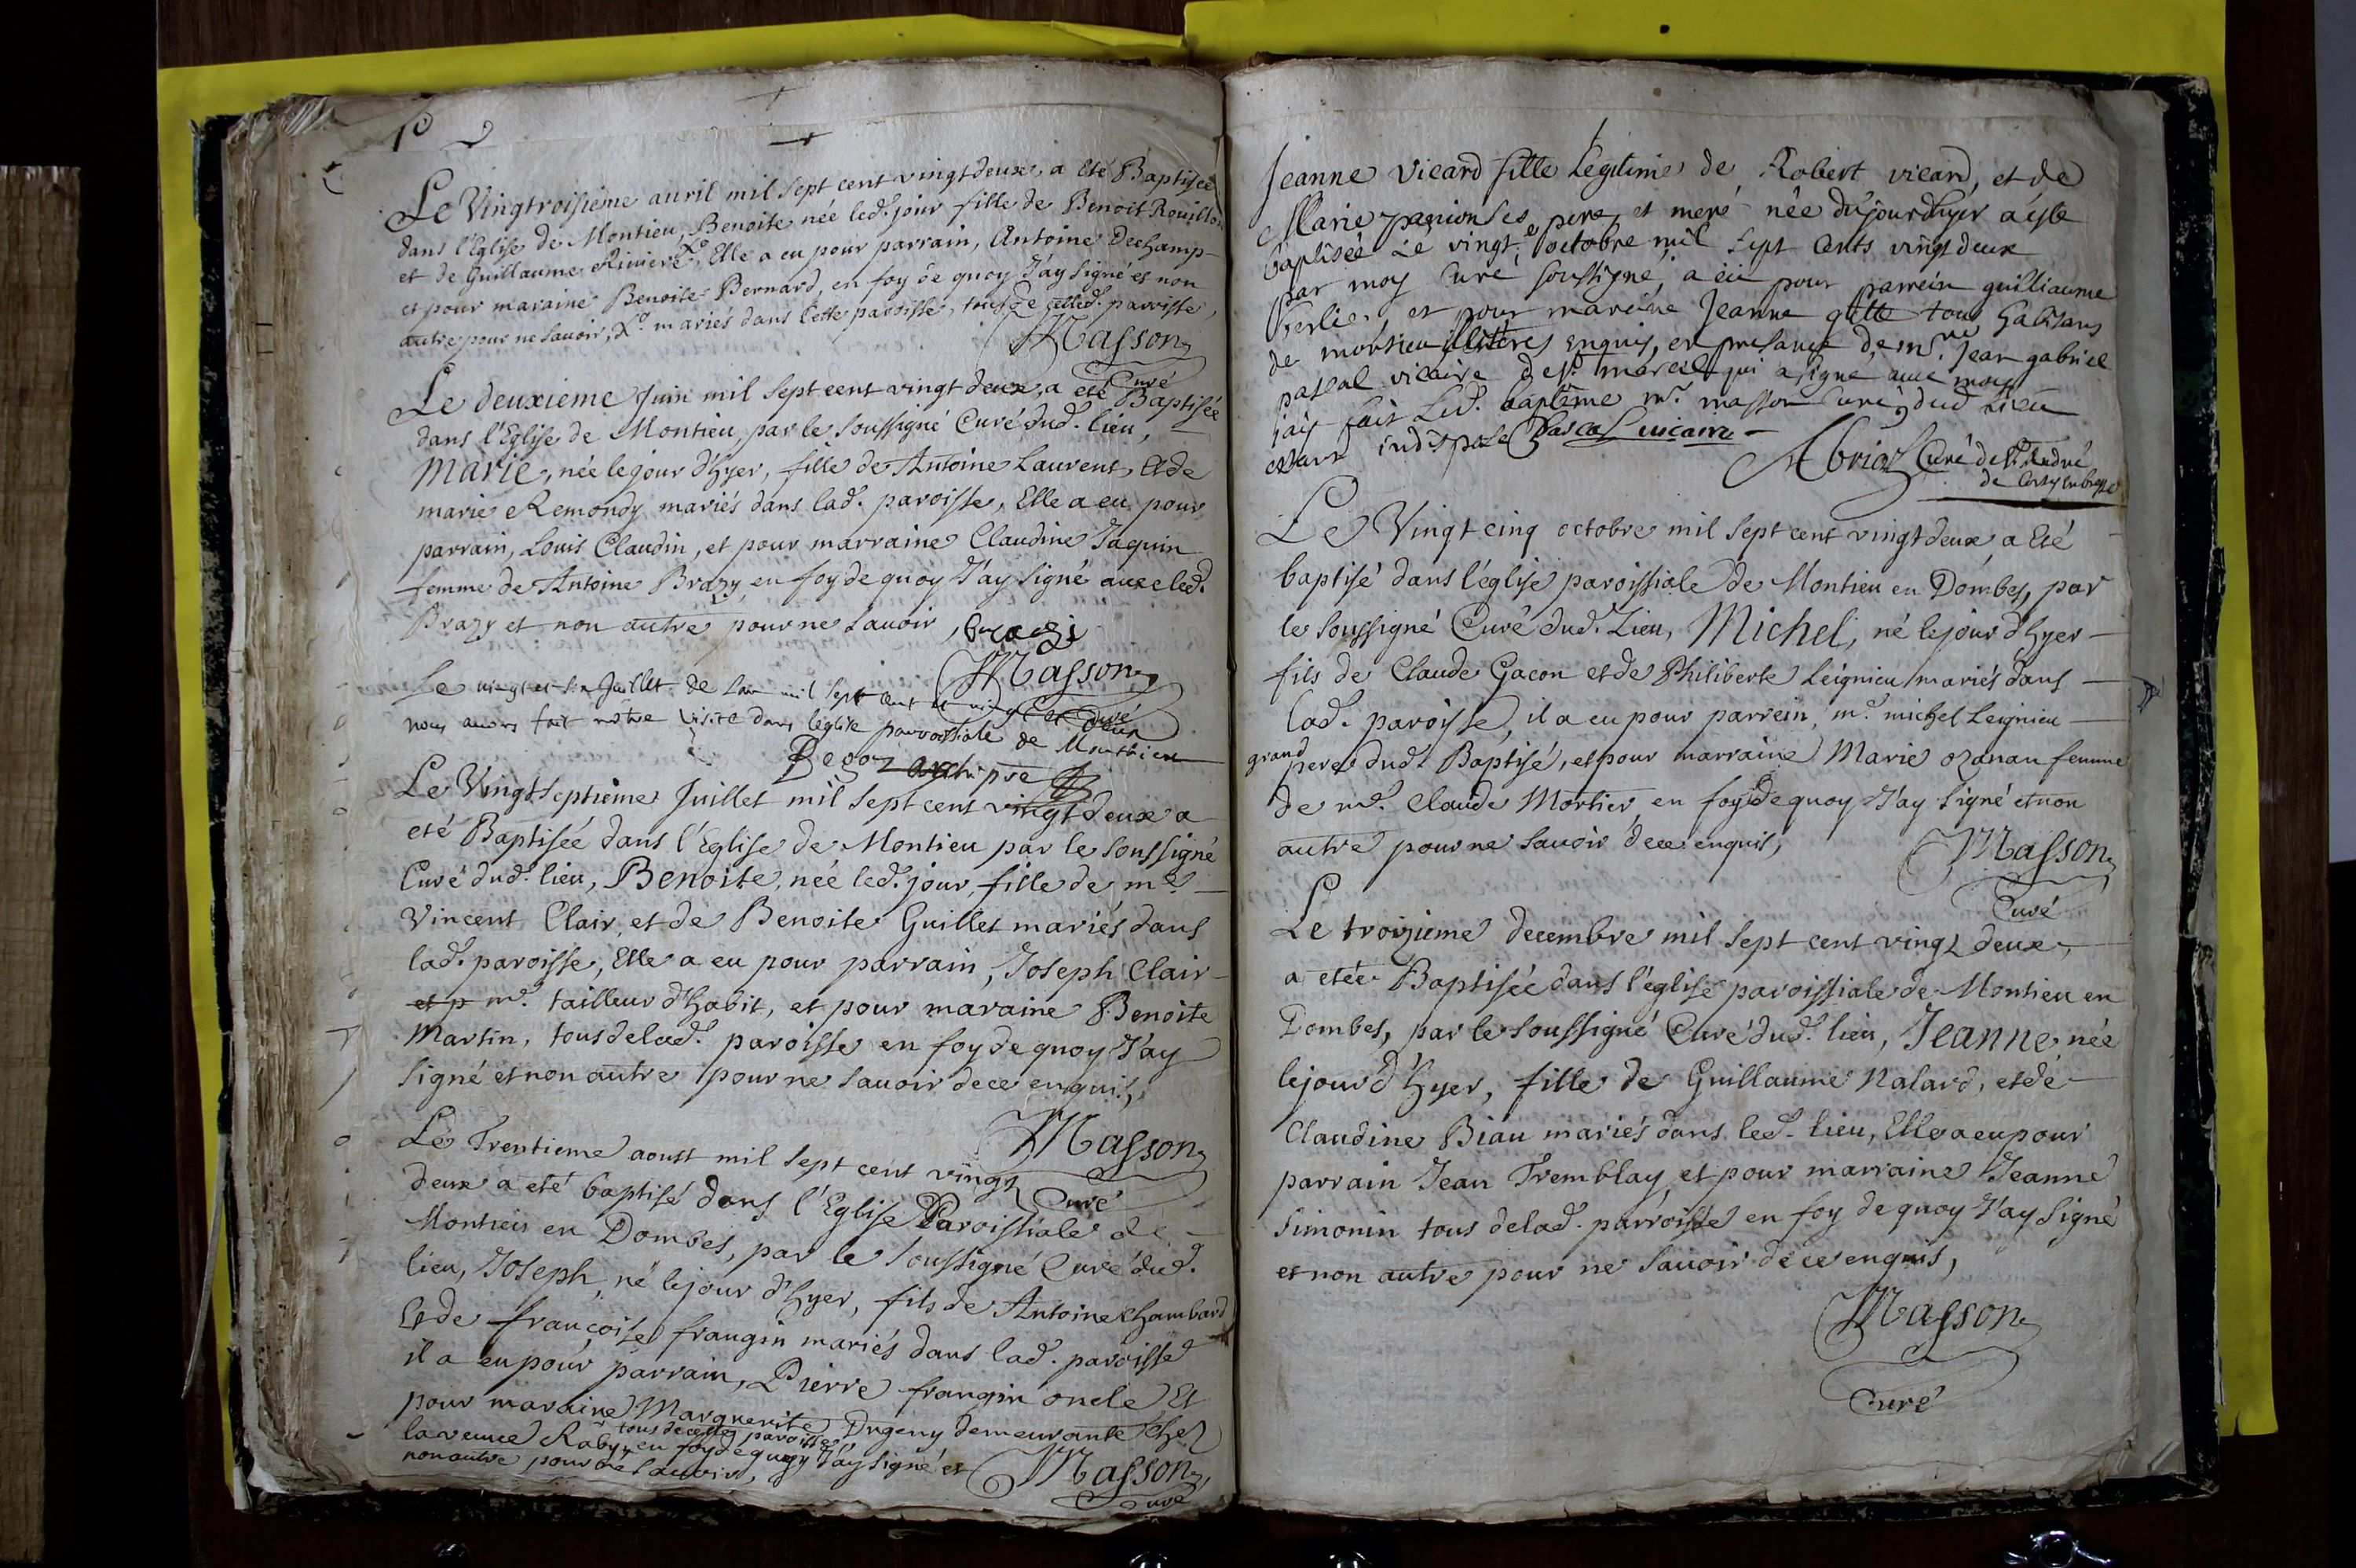 Le Vingtroisieme auril mil sept cent vingt deux, a eté Baptisée
dans l'Eglise de Montieu, Benoite née led. jour fille de Benoit Rouillon
et de Guillaume Riviere Xo, Elle a eu pour parrain, Antoine Dechamp
et pour maraine Benoite Bernard, en foy de quoy J'ay signé et non
autre pour ne sauoir, Xo. mariés dans cette paroisse, tous de parroisse,
Masson
Curé
Le deuxieme Juin mil sept cent vingt deux, a eté Baptisée
dans l'Eglise de Montieu, par le soussigné Curé dud. lieu,
Marie, née le jour d'hyer, fille de Antoine Laurent, et de
marie Remondy mariés dans lad. paroisse, Elle a eu pour
parrain, Louis Claudin, et pour marraine Claudine Jaquin
femme de Antoine Brazy, en foy de quoy J'ay signé auec led.
Brazy et non autre pour ne sauoir, brazi
Masson
Curé
Le vingt et six Juillet de lan mil sept cent et vingt et deux
nous auons fait nôtre visite dans leglise parroissiale de Monthieu
Begoz archipre
Le Vingtseptieme Juillet mil sept cent vingt deux a
eté Baptisée dans l'Eglise de Montieu par le soussigné
Curé dud. lieu, Benoite, née led. jour, fille de me.
Vincent Clair, et de Benoite Guillet mariés dans
lad. paroisse, Elle a eu pour parrain, Joseph Clair
et p me. tailleur d'habit, et pour maraine Benoite
Martin, tous de lad. paroisse en foy de quoy J'ay
signé et non autre pour ne sauoir de ce enquis,
Masson
Curé
Le Trentieme aoust mil sept cent vingt
deux a eté baptisé dans l'Eglise Paroissiale de
Montieu en Dombes, par le soussigné Curé dud.
lieu, Joseph, né le jour d'hyer, fils de Antoine Chambard
et de françoise frangin mariés dans lad. paroisse
il a eu pour parrain, Pierre frangin oncle Et
pour maraine Marguerite Dugeny demeurante chez
la veuue Raby, tous de cette paroisse en foy de quoy J'ay signé et
non autre pour ne sauoir,
Masson
Curé
Jeanne vicard fille legitime de Robert vicard, et de
Marie panion ses pere, et mere née du jourdhyer a este
baptisée Le vingt e octobre mil sept cents vingt deux
par moy Curé soussigné, a eü pour parrein guilliaume
ferlie et pour mareine Jeanne gille tous habitans
de montieu illitérés enquis, en presance de mre. Jean gabriel
pascal vicaire de st. marcel qui a signe auec moy
jay fait led. baptême mr. masson Curé dud lieu
estant indispose Pascal uicaire
Abrial Curé de st. André
de Corcy en bresse
Le Vingt cinq octobre mil sept cent vingt deux, a eté
baptisé dans l'église paroissiale de Montieu en Dombes, par
le soussigné Curé dud. Lieu, Michel, né le jour d'hyer
fils de Claude Gacon et de Philiberte Leignieu mariés dans
lad. paroisse, il a eu pour parrein, me. michel Leignieu
grand
pere dud. Baptisé, et pour marraine Marie ozanan femme
de me. Claude Mortier, en foy de quoy J'ay signé et non
autre pour ne sauoir de ce enquis,
Masson
Curé
Le troizieme decembre mil sept cent vingt deux,
a etée Baptisée dans l'église paroissiale de Montieu en
Dombes, par le soussigné Curé dud. lieu, Jeanne, née
le jour d'hyer, fille de Guillaume Nalard, et de
Claudine Biau mariés dans led. lieu, Elle a eu pour
parrain Jean Tremblay, et pour marraine Jeanne
Simonin tous de lad. parroisse en foy de quoy J'ay signé
et non autre pour ne sauoir de ce enquis,
Masson
Curé